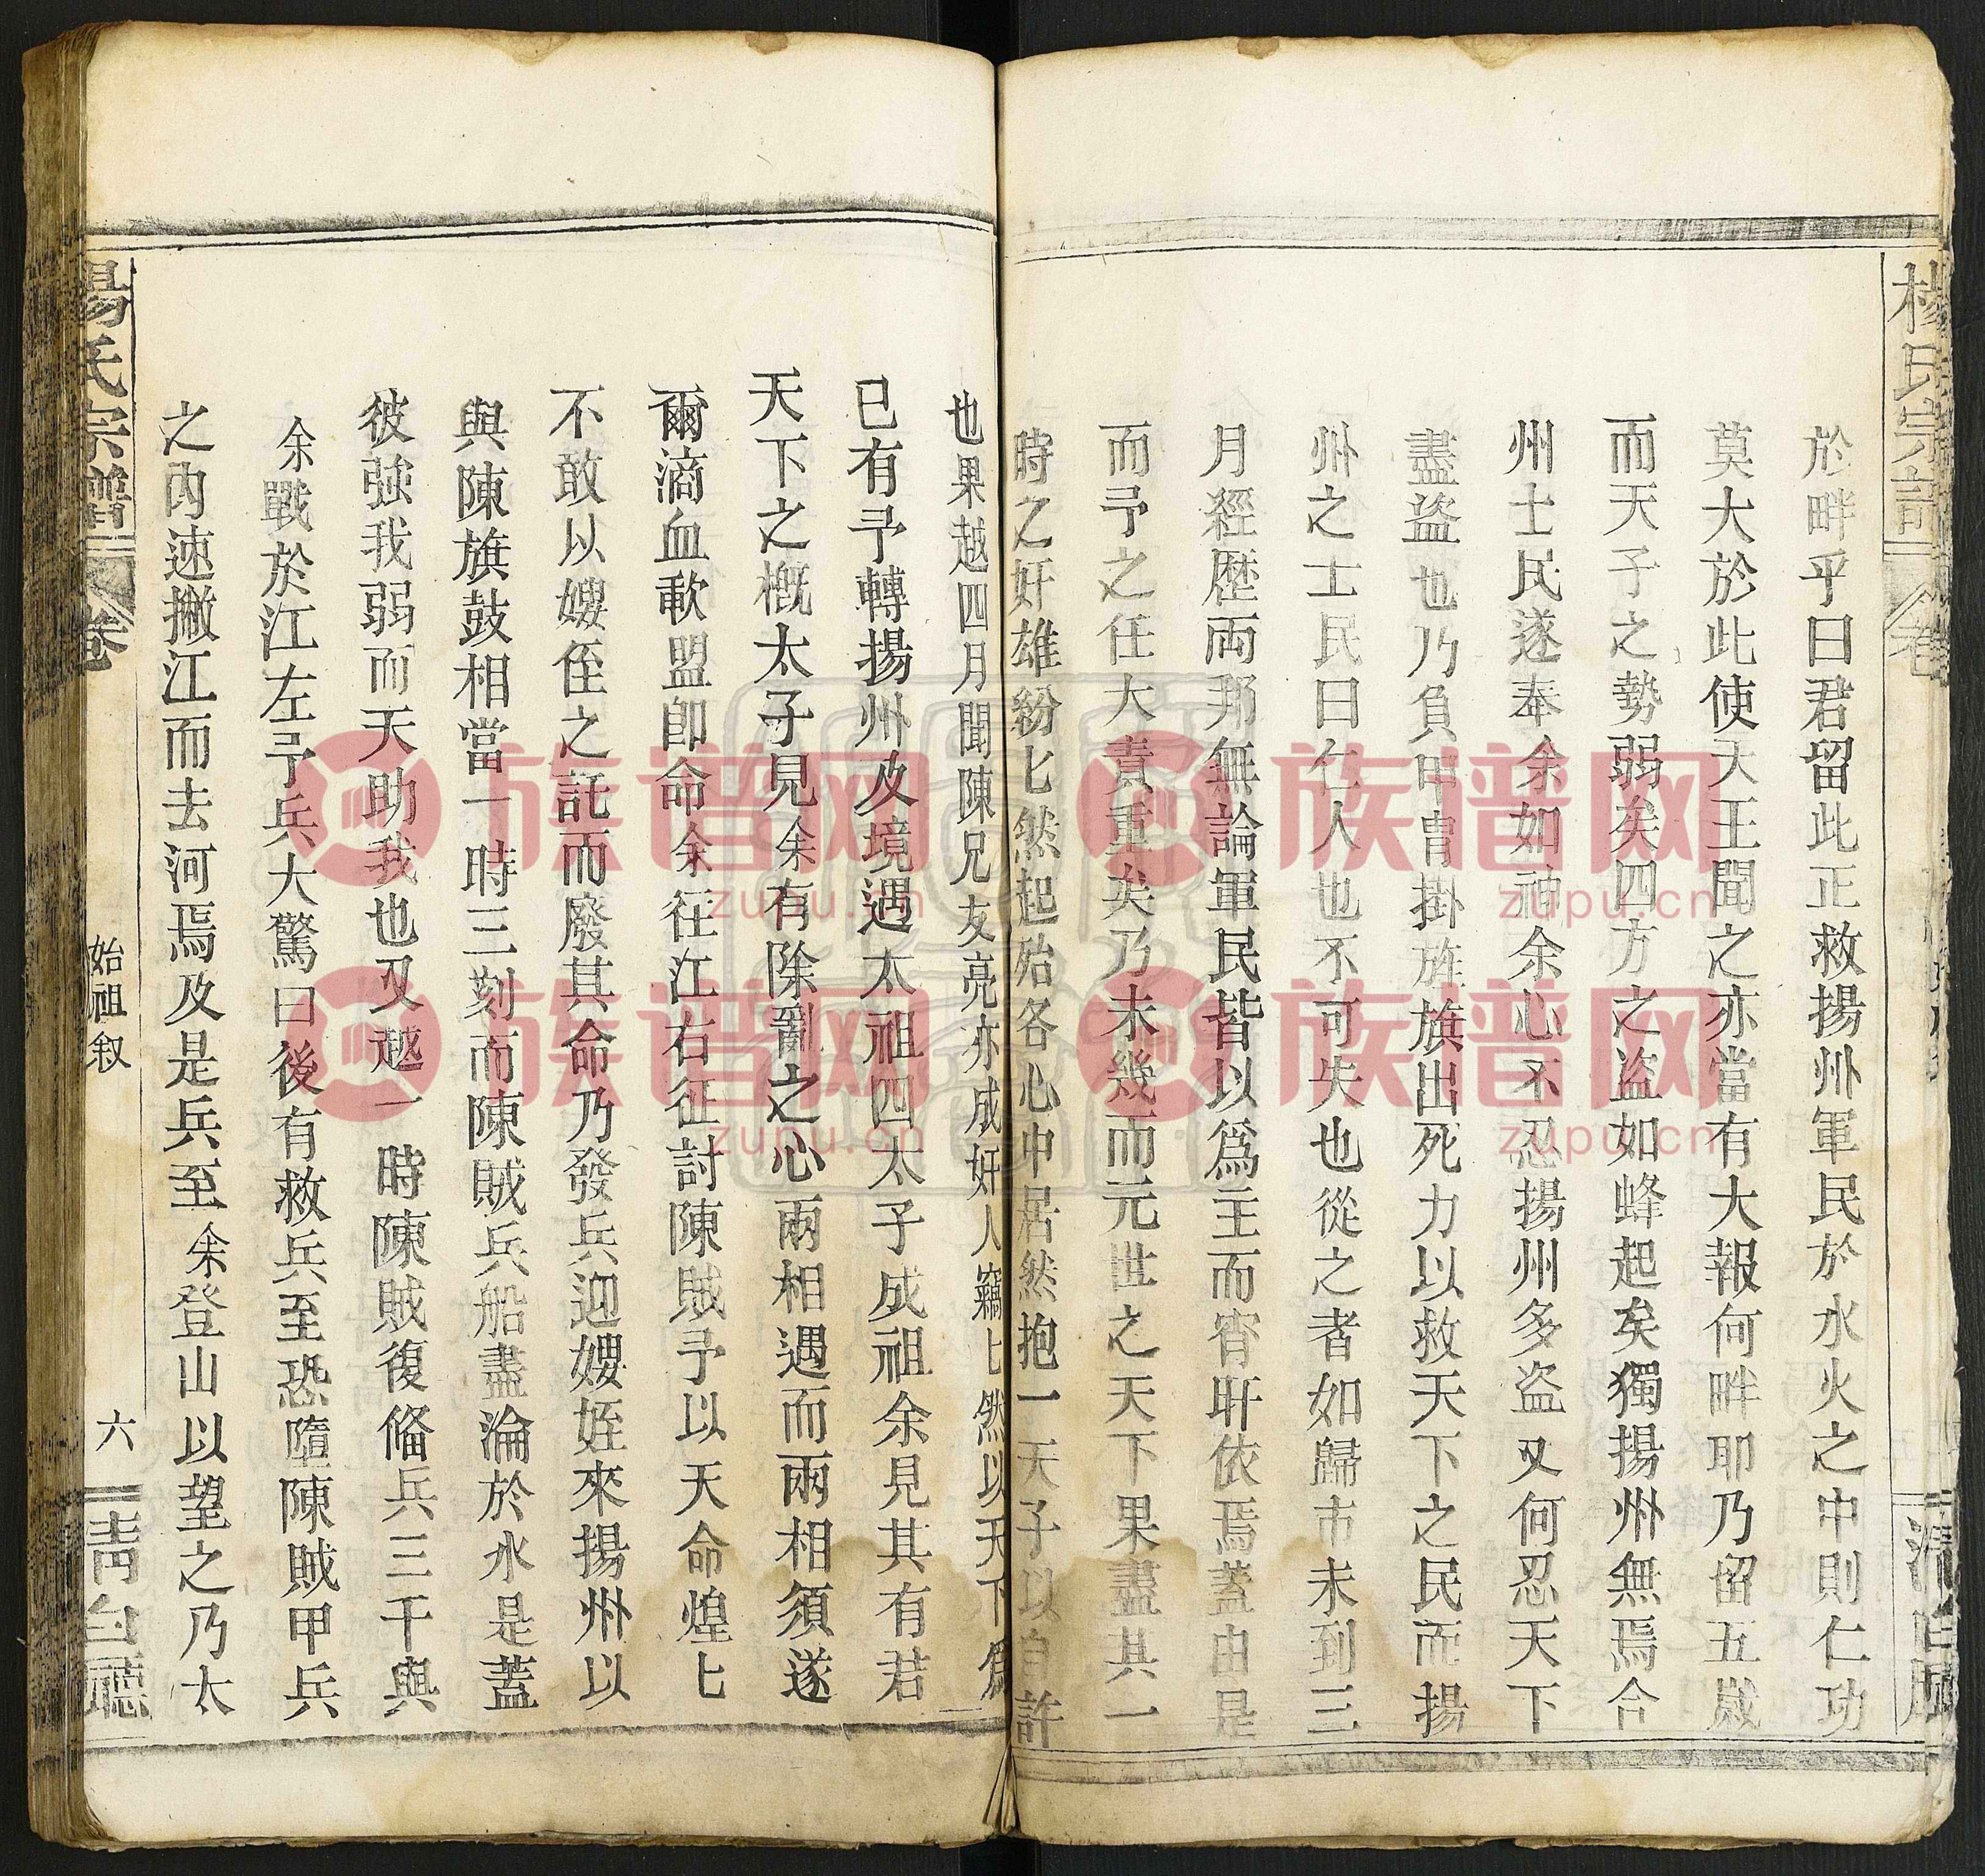 於畔乎曰君留此正救揚州軍民於水火之中則仁功
莫大於此使天王聞之亦當有大報何畔耶乃留五歲
而天子之勢弱矣四方之盜如蜂起矣獨揚州無焉合
州士民遂奉余如神余心不忍揚州多盜又何忍天下
盡盜也乃負甲冑掛旌旗出死力以救天下之民而揚
州之士民曰仁人也不可失也從之者如歸市未到三
月經歷兩邦無論軍民皆以爲主而宵旰依焉蓋由是
而予之任大責重矣乃未幾而元世之天下果盡其一
時之奸雄紛匕然起殆各心中居然抱一天子以自許
也果越四月聞陳兄友亮亦成奸人竊匕然以天下爲
已有予轉揚州及境遇太祖四太子成祖余見其有君
天下之概太子見余有除亂之心兩相遇而兩相須遂
爾滴血歃盟卽命余徃江右征討陳賊予以天命煌匕
不敢以嫂侄之託而廢其命乃發兵迎嫂姪來揚州以
與陳旗鼓相當一時三刻而陳賊兵船盡淪於水是蓋
彼強我弱而天助我也又越一時陳賊復俻兵三千與
余戰於江左予兵大驚曰後有救兵至恐墮陳賊甲兵
之內速撇江而去河焉及是兵至余登山以望之乃太
楊氏宗譜
卷
始祖叙
六
清白廳
楊氏宗譜
卷
族谱网
zupu.cn
族谱网
zupu.cn
族谱网
zupu.cn
族谱网
zupu.cn